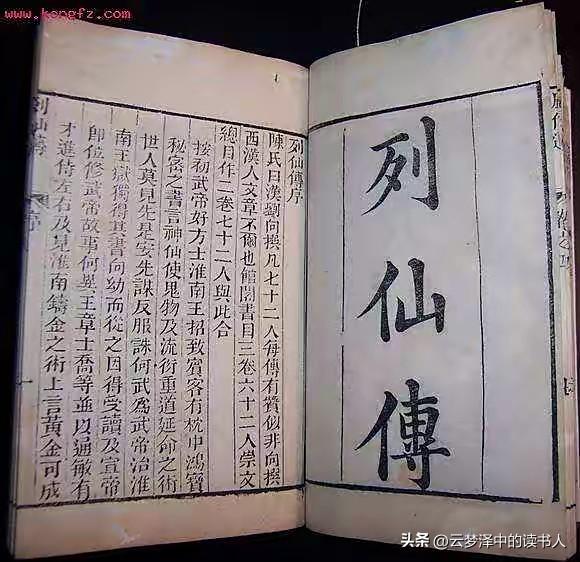 www.kongfz.com
列仙傳
列仙傳序
陳氏曰漢劉向撰凡七十二人每傳有贊似非向撰
西漢人文章不爾也館閣書目三卷六十二人崇文
總目作二卷七十二人與此合
按初武帝好方士淮南王招致賓客有枕中鴻寶
秘密之書言神仙使鬼物及流衍重道延命之術
世人莫見先是安先謀反服誅何武為武帝治淮
南王獄獨得其書向幼而從之因得受讀及宣帝
即位修武帝故事何與王章士喬等並以通敏有
才進侍左右及見淮南鑄金之術上言黃金可成
列仙傳
序
一
头条 @云梦泽中的读书人